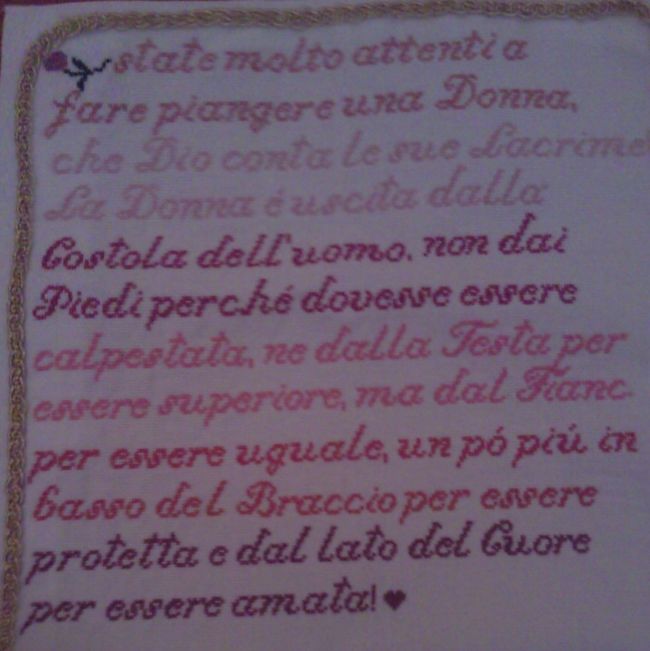 state molto attenti a
fare piangere una Donna,
che Dio conta le sue Lacrime
La Donna é uscita dalla
Costola dell'uomo. non dai
Piedi perché dovesse essere
calpestata, ne dalla Testa per
essere superiore, ma dal Fianc
per essere uguale, un pó piú in
basso del Braccio per essere
protetta e dal lato del Cuore
per essere amata! ♥